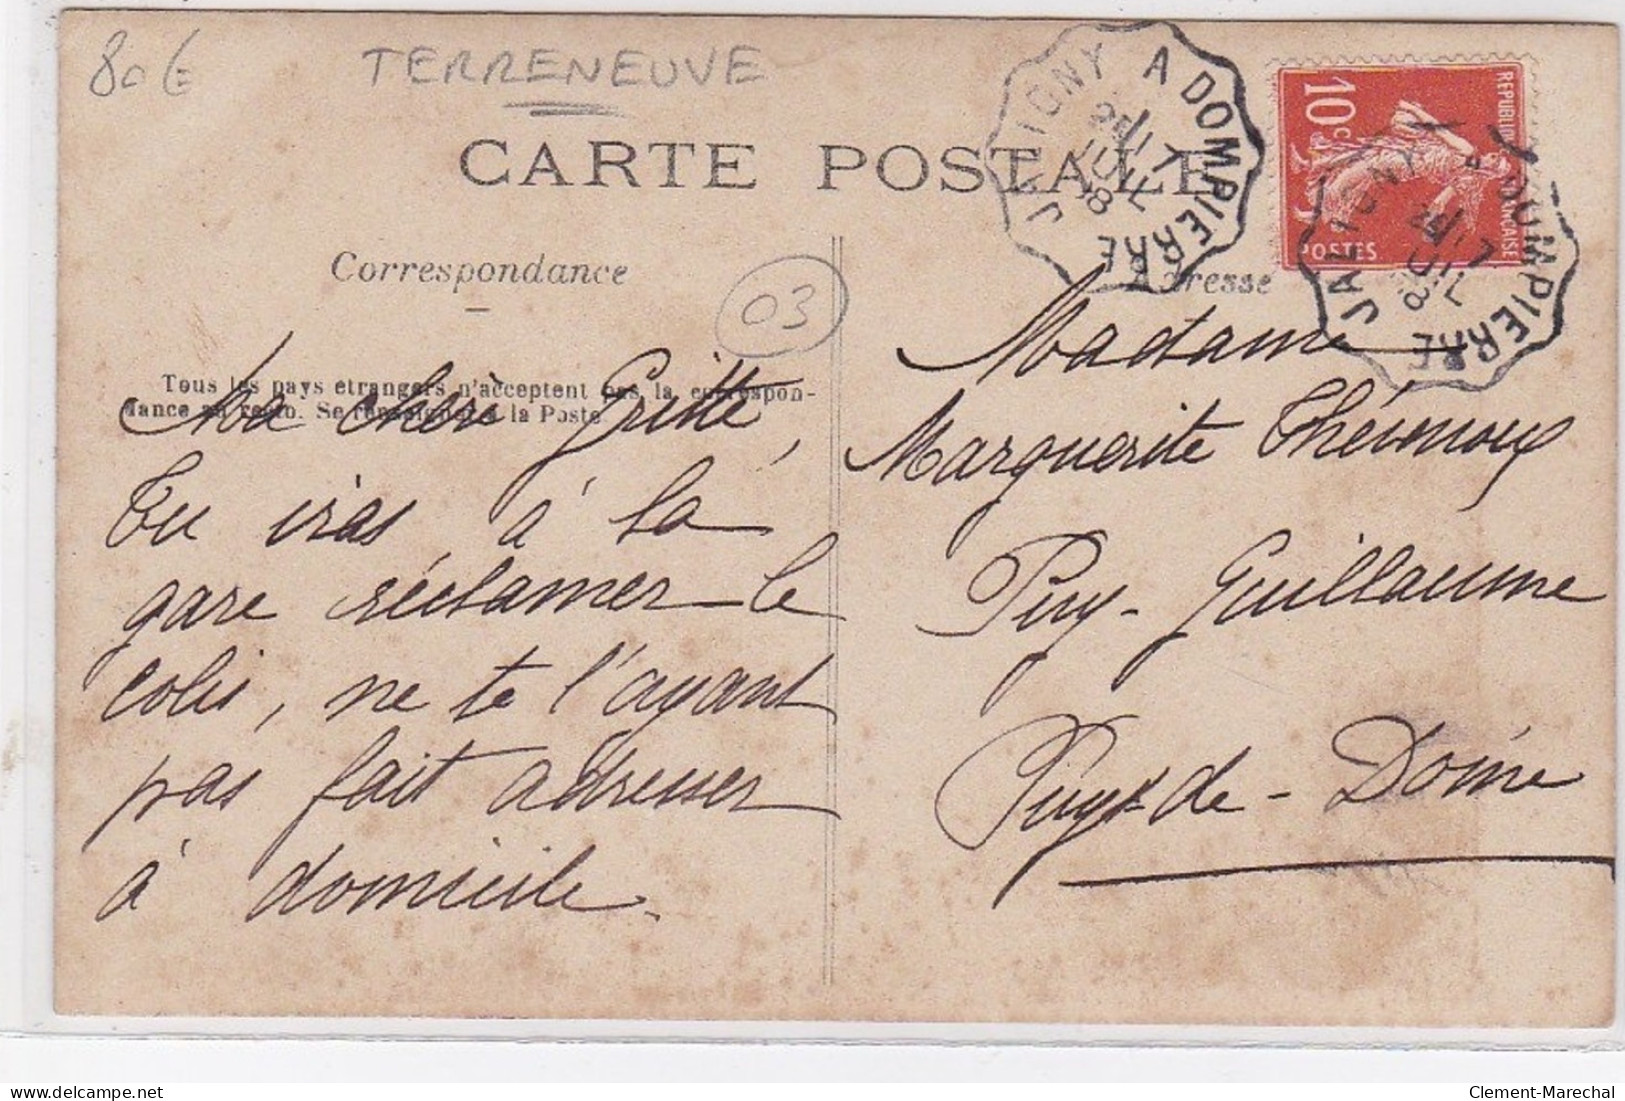 80€
TERRENEUVE
CARTE POSTALE
Correspondance
Adresse
03
Tous les pays étrangers n'acceptent pas la correspon-
dance au recto. Se renseigner à la Poste
Ma chère Gritte,
Tu iras à la
gare réclamer le
colis, ne te l'ayant
pas fait adresser
à domicile.
Madame
Marguerite
Puy-Guillaume
Puy-de-Dôme
JALIGNY A DOMPIERRE
JUIL
08
REPUBLIQUE FRANÇAISE
10c
POSTES
JALIGNY A DOMPIERRE
JUIL
08
Clement-Marechal